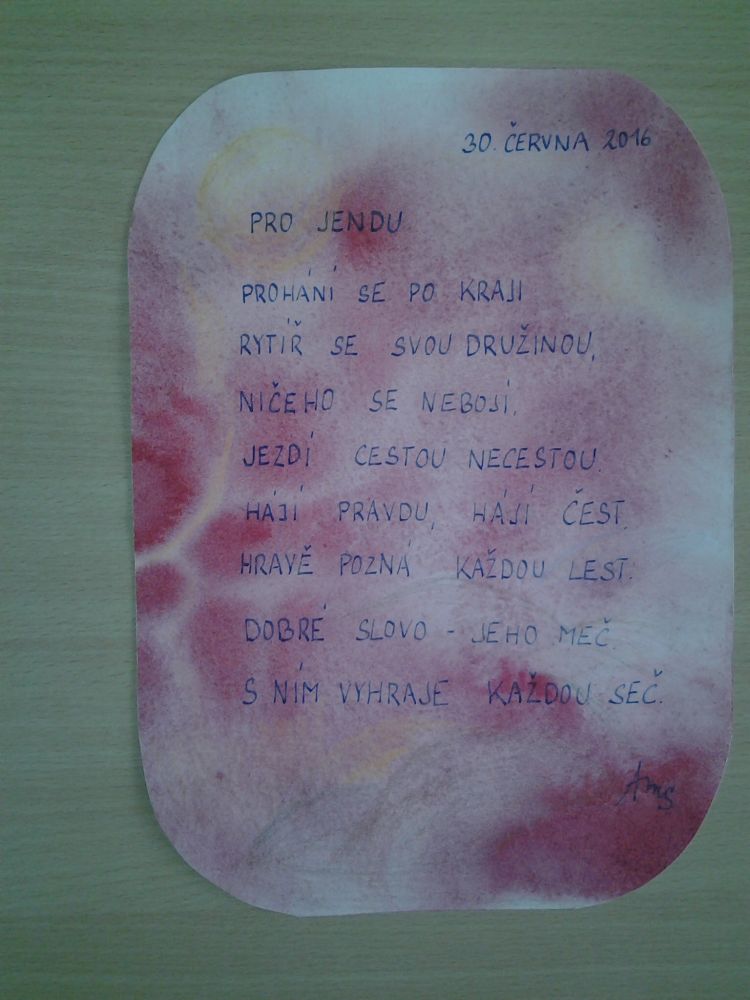 30. ČERVNA 2016
PRO JENDU
PROHÁNÍ SE PO KRAJI
RYTÍŘ SE SVOU DRUŽINOU,
NIČEHO SE NEBOJÍ,
JEZDÍ CESTOU NECESTOU.
HÁJÍ PRAVDU, HÁJÍ ČEST,
HRAVĚ POZNÁ KAŽDOU LEST.
DOBRÉ SLOVO - JEHO MEČ.
S NÍM VYHRAJE KAŽDOU SEČ.